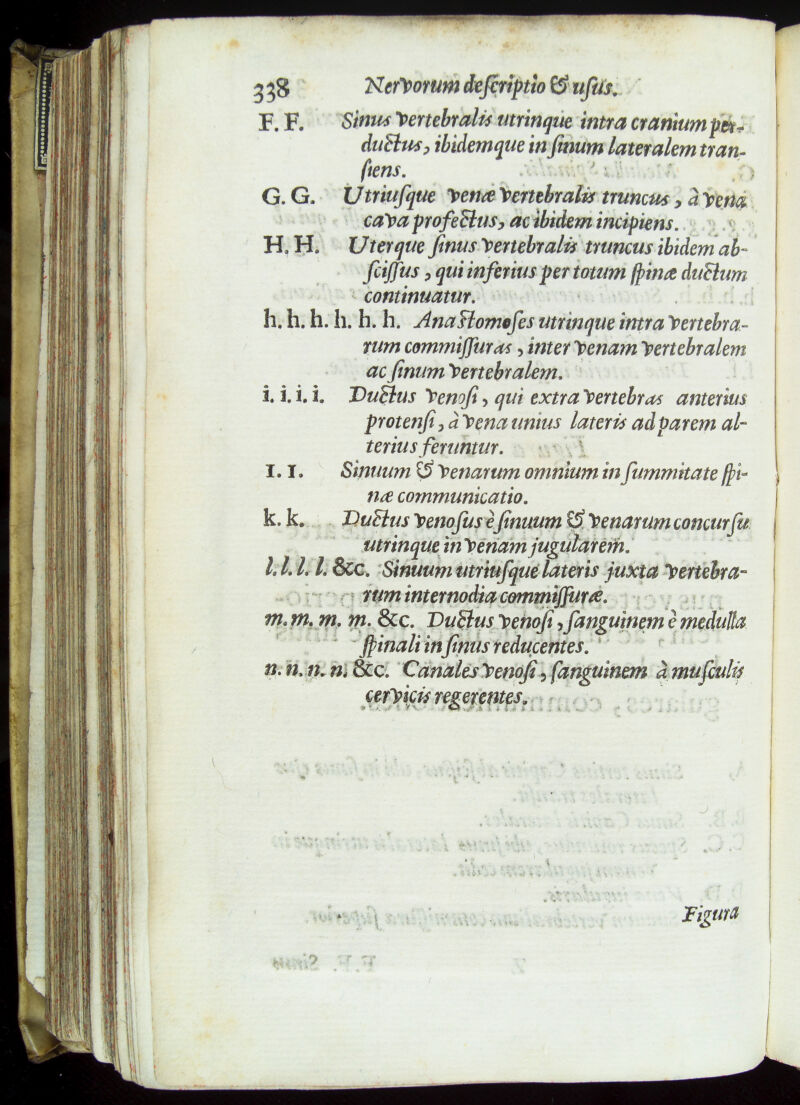 338 Nervorum deſcriptio & uſus.
F. F. Sinus vertebralis utrinque intra cranium per-
ductus, ibidemque in ſinum lateralem tran-
ſiens.
G. G. Utriuſque venæ vertebralis truncus, à vena
cava profectus, ac ibidem incipiens.
H. H. Uterque ſinus vertebralis truncus ibidem ab-
ſciſſus, qui inferius per totum ſpinæ ductum
continuatur.
h. h. h. h. h. h. Anaſtomoſes utrinque intra vertebra-
rum commiſſuras, inter venam vertebralem
ac ſinum vertebralem.
i. i. i. i. Ductus venoſi, qui extra vertebras anterius
protenſi, à vena unius lateris ad parem al-
terius feruntur.
I. I. Sinuum & venarum omnium in ſummitate ſpi-
næ communicatio.
k. k. Ductus venoſus è ſinuum & venarum concurſu
utrinque in venam jugularem.
l. l. l. l. &c. Sinuum utriuſque lateris juxta vertebra-
rum internodia commiſſuræ.
m. m. m. m. &c. Ductus venoſi, ſanguinem è medulla
ſpinali in ſinus reducentes.
n. n. n. n. &c. Canales venoſi, ſanguinem à muſculis
cervicis regerentes.
Figura